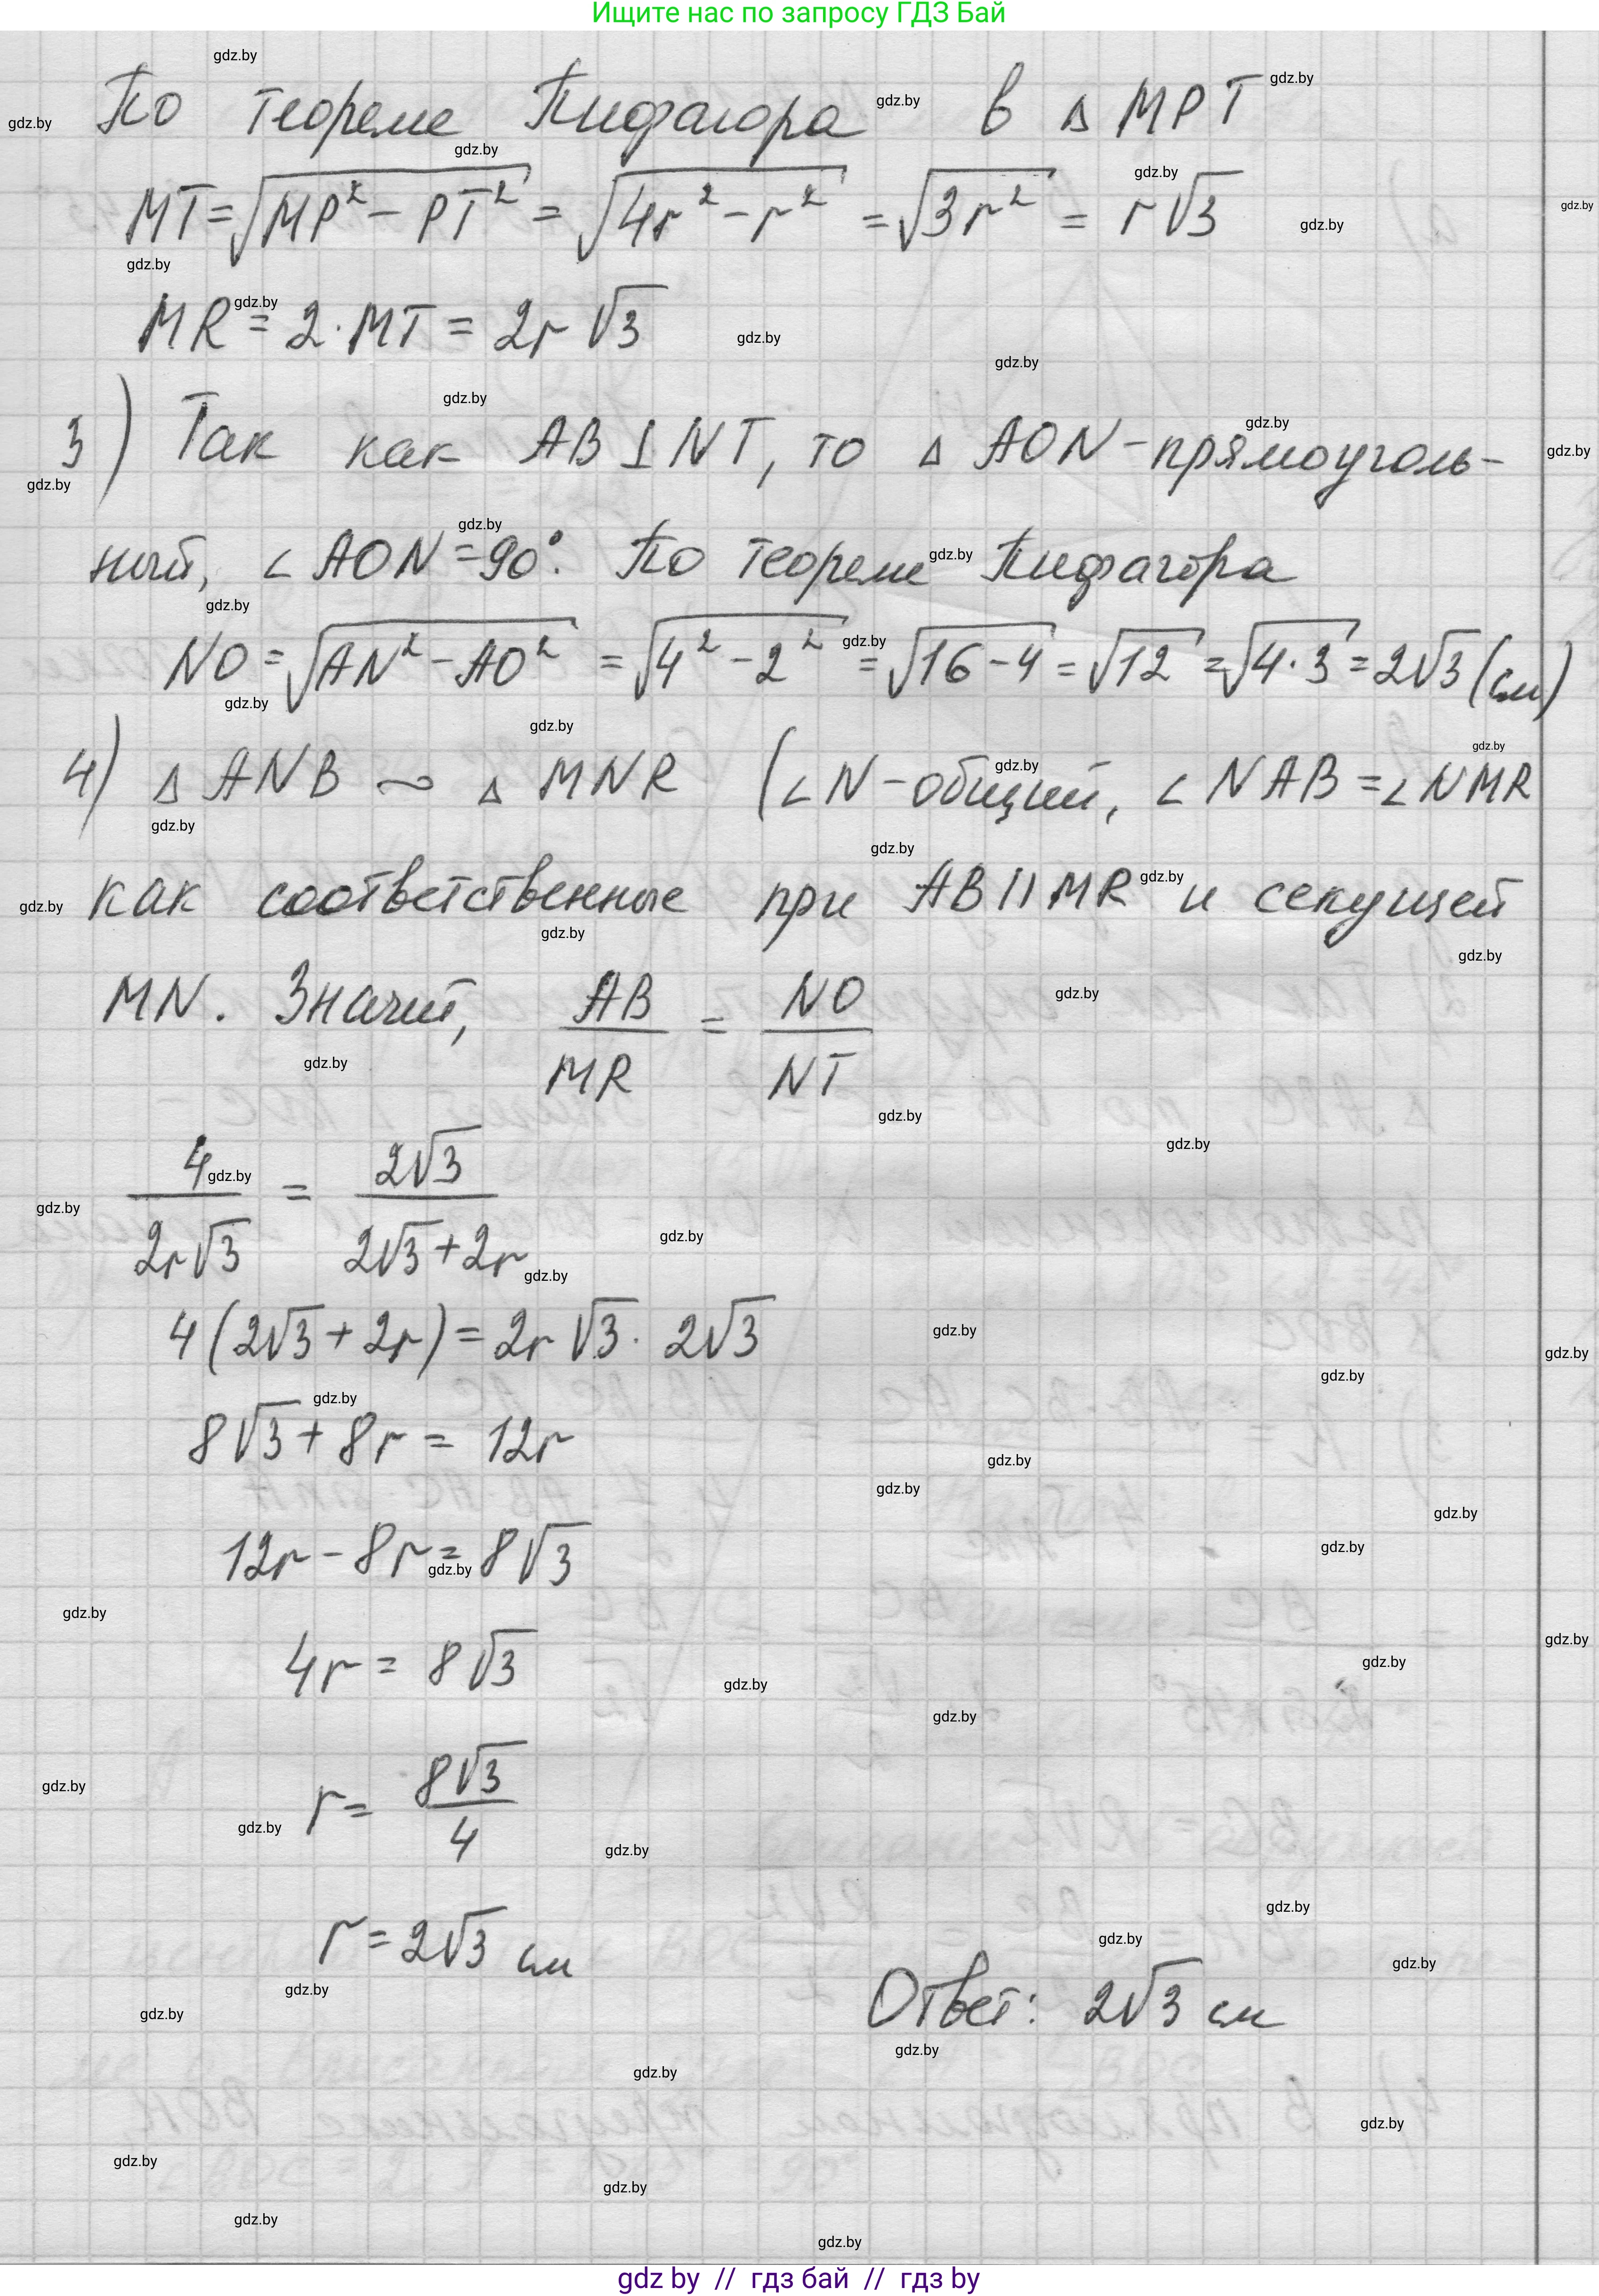 Ищите нас по запросу ГДЗ Бай
По теореме Пифагора в △ MPT
MT = √(MP² − PT²) = √(4r² − r²) = √(3r²) = r√3
MR = 2·MT = 2r√3
3) Так как AB ⊥ NT, то △ AON – прямоуголь-
ный, ∠ AON = 90°. По теореме Пифагора
NO = √(AN² − AO²) = √(4² − 2²) = √(16 − 4) = √12 = √(4·3) = 2√3 (см)
4) △ ANB ∼ △ MNR (∠ N – общий, ∠ NAB = ∠ NMR
как соответственные при AB || MR и секущей
MN. Значит, AB/MR = NO/NT
4/(2r√3) = 2√3/(2√3 + 2r)
4(2√3 + 2r) = 2r√3 · 2√3
8√3 + 8r = 12r
12r − 8r = 8√3
4r = 8√3
r = 8√3/4
r = 2√3 см
Ответ: 2√3 см
gdz by // гдз бай // гдз by